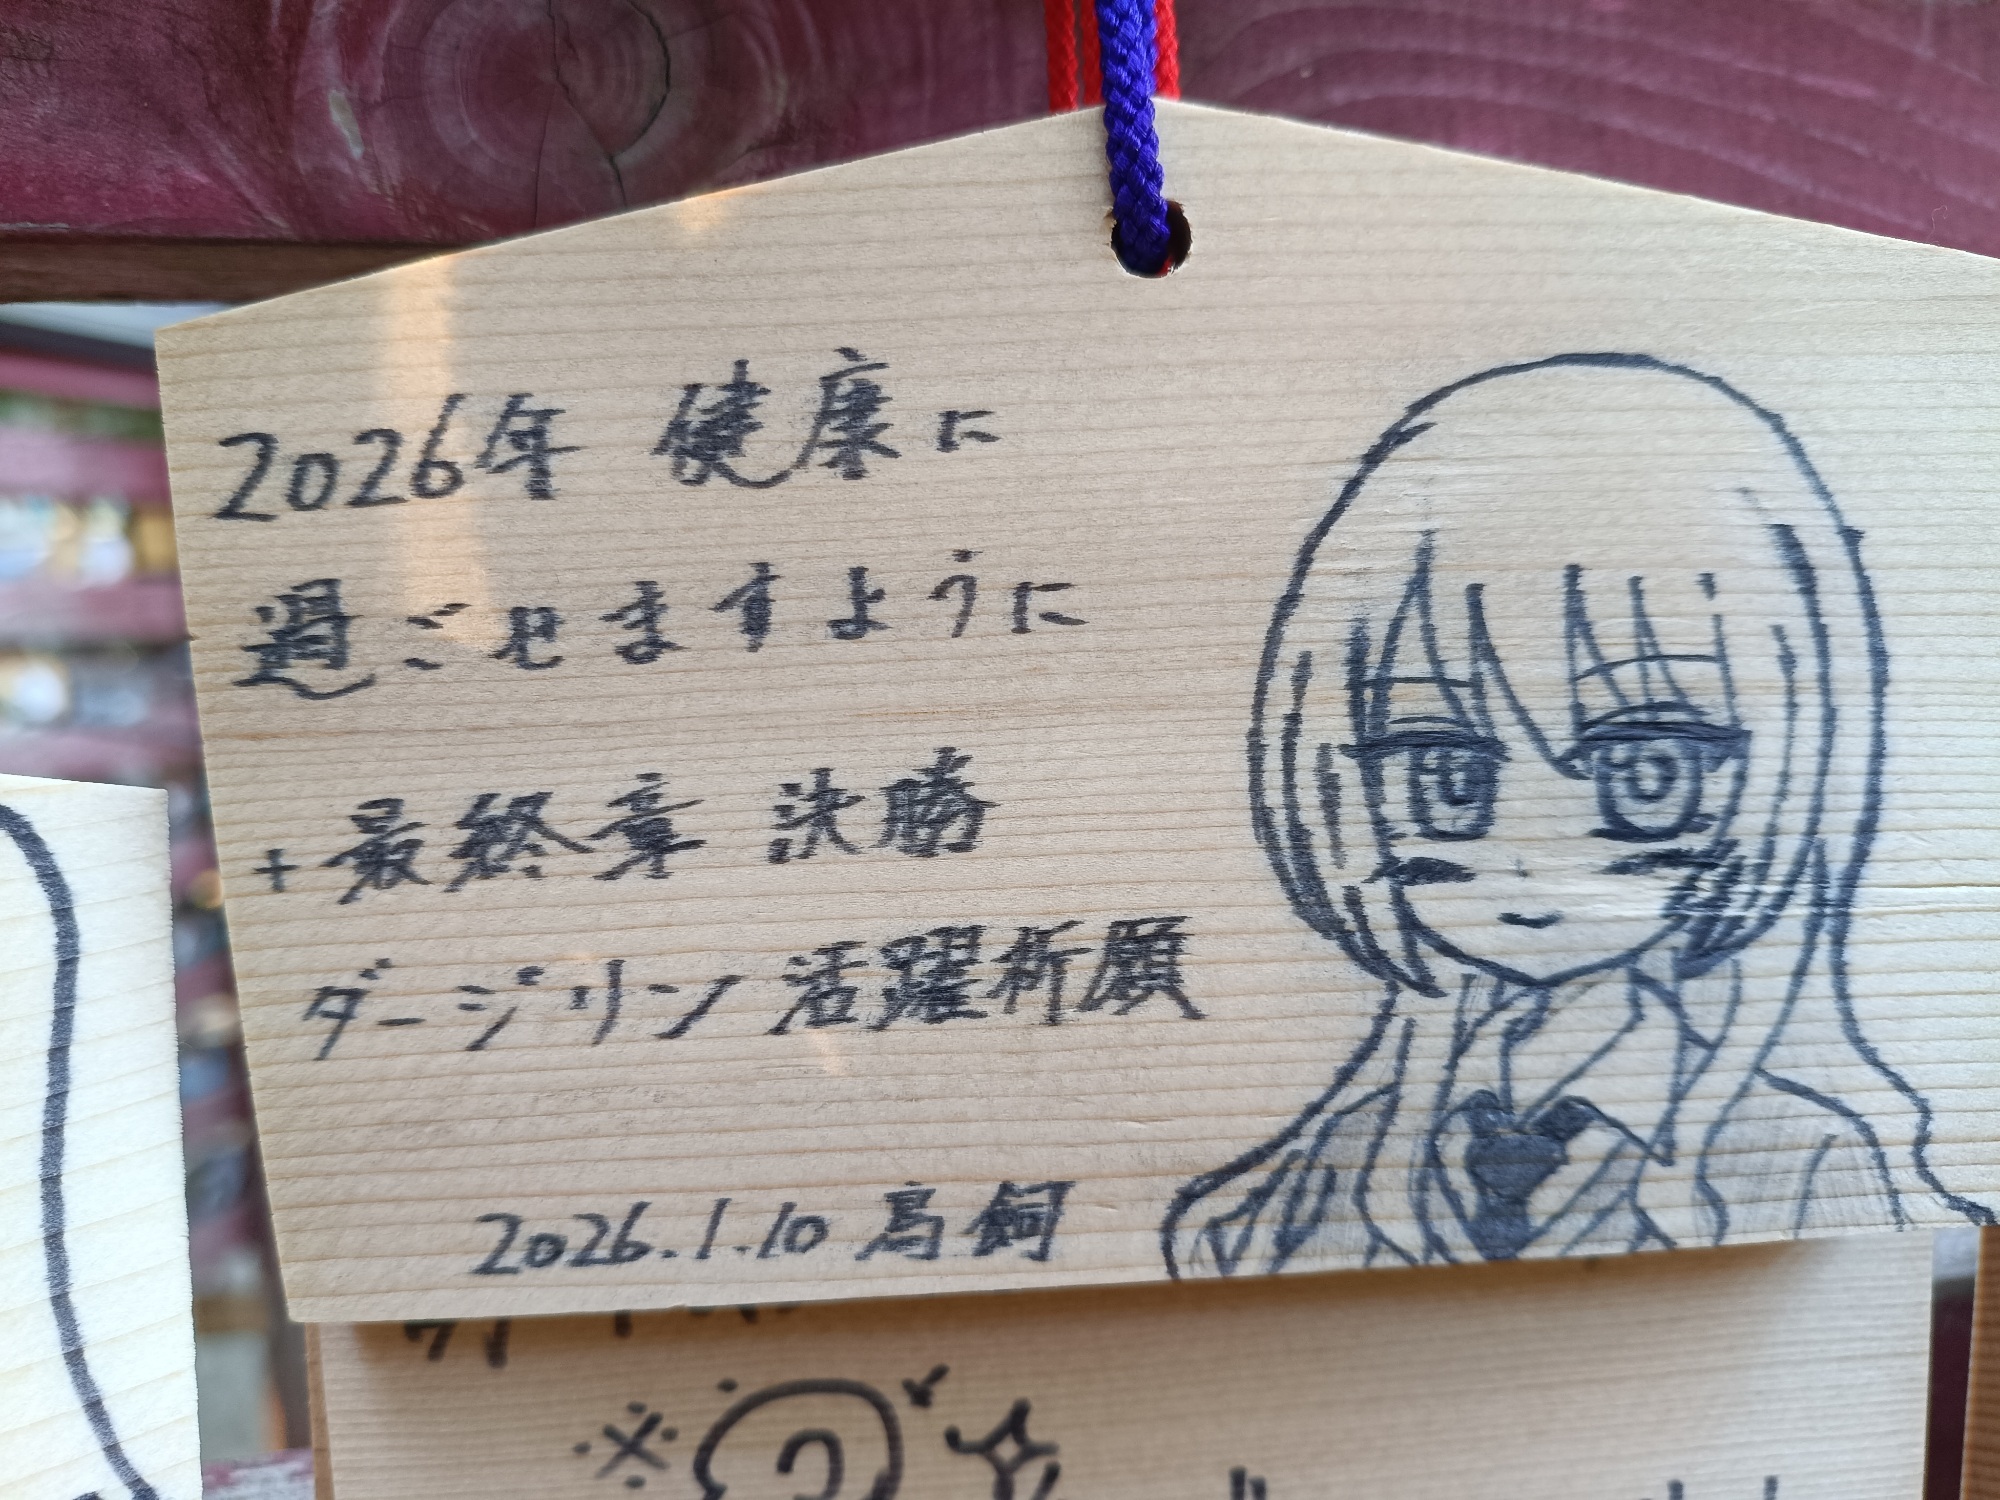 2026年 健康に
過ごせますように
+最終章 決勝
ダージリン活躍祈願
2026.1.10 鳥飼
※